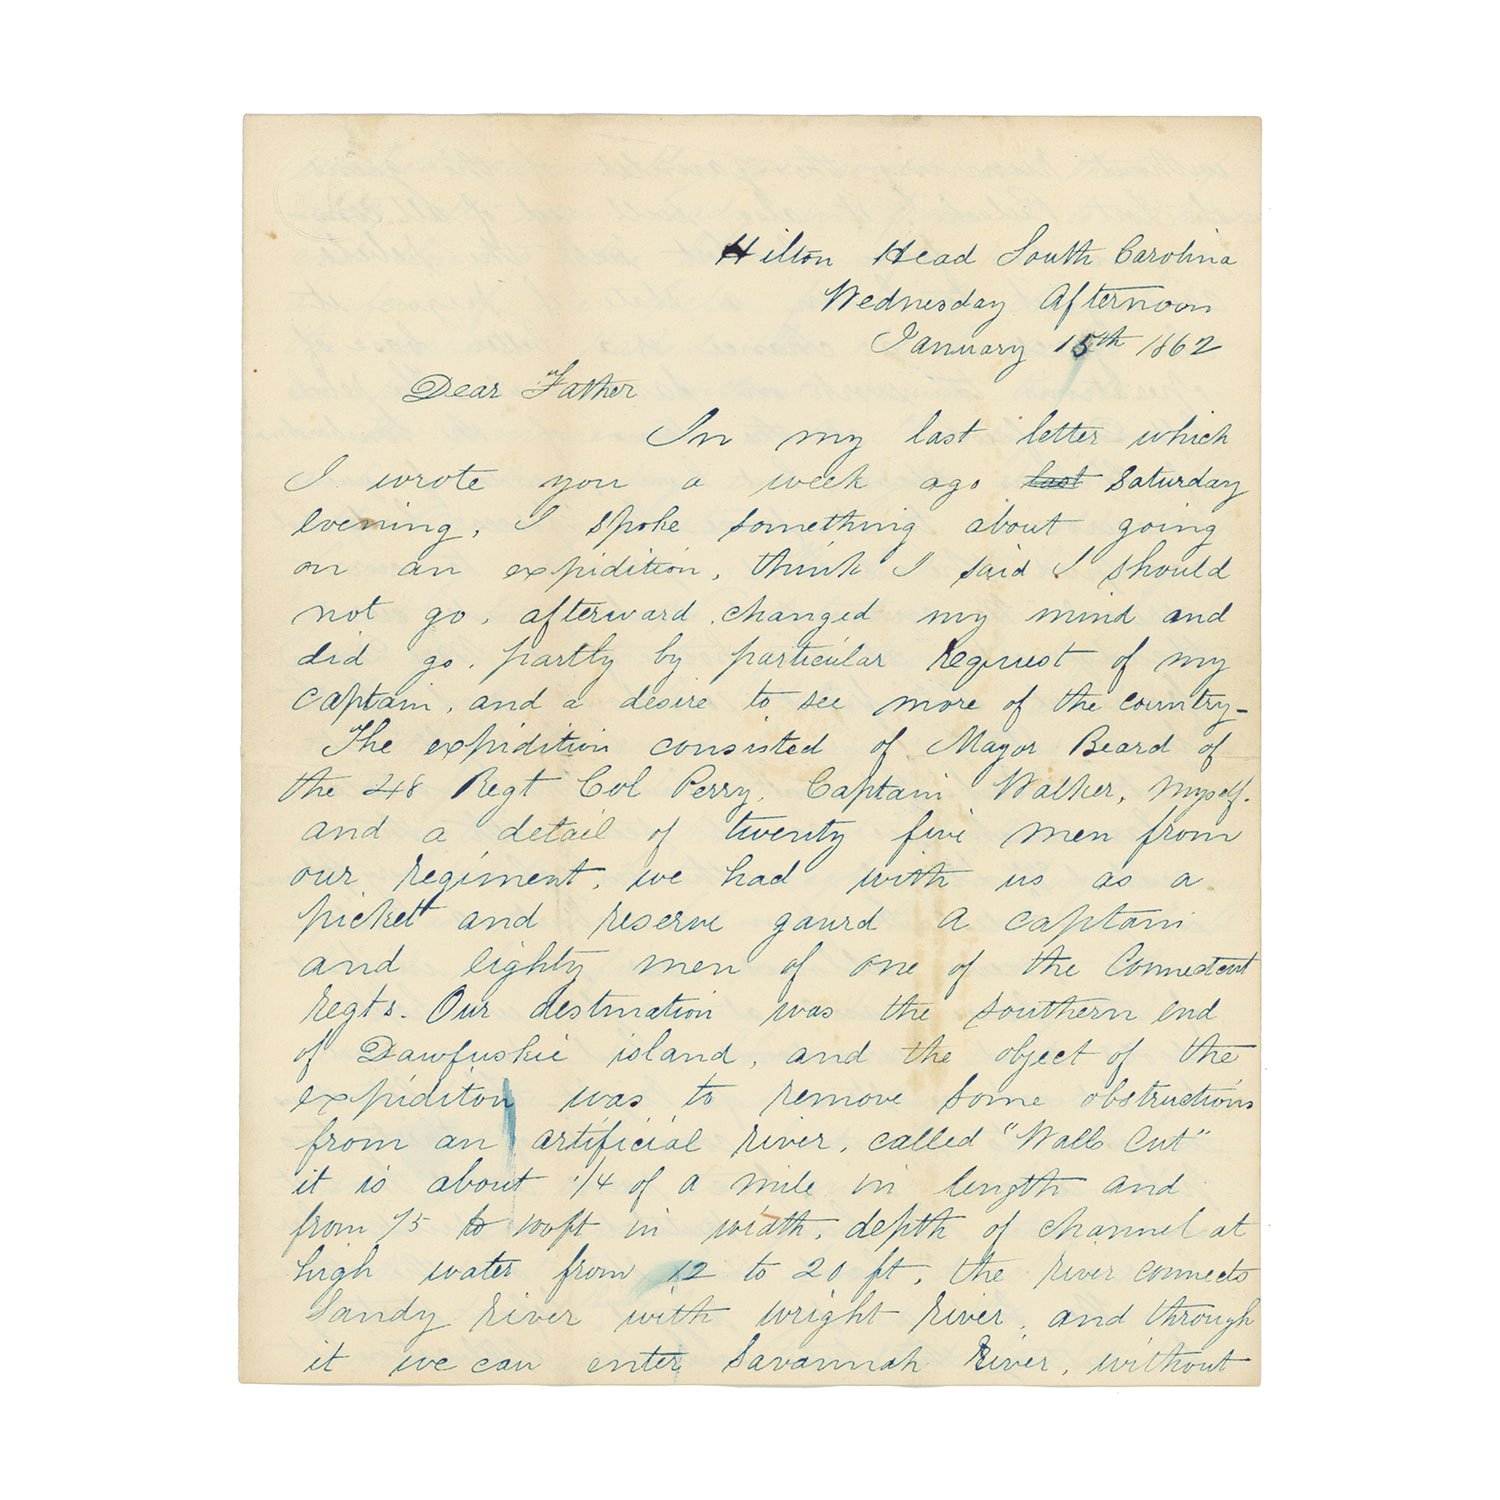 Hilton Head South Carolina
Wednesday Afternoon
January 15th 1862
Dear Father
In my last letter which
I wrote you a week ago last Saturday
evening, I spoke something about going
on an expidition, think I said I should
not go, afterward changed my mind and
did go, partly by particular request of my
captain, and a desire to see more of the country-
The expidition consisted of Mayor Beard of
the 48 Regt Col Perry, Captain Walker, Myself.
and a detail of twenty five men from
our regiment, we had with us as a
pickett and reserve gaurd a captain
and eighty men of one of the Connectcut
regts. Our destination was the southern end
of Dawfuskie island, and the object of the
expiditon was to remove some obstructions
from an artificial river, called "Walls Cut"
it is about 1/4 of a mile in length and
from 75 to 100ft in width, depth of channel at
high water from 12 to 20 ft, the river connects
Sandy river with wright river, and through
it we can enter Savannah River, without